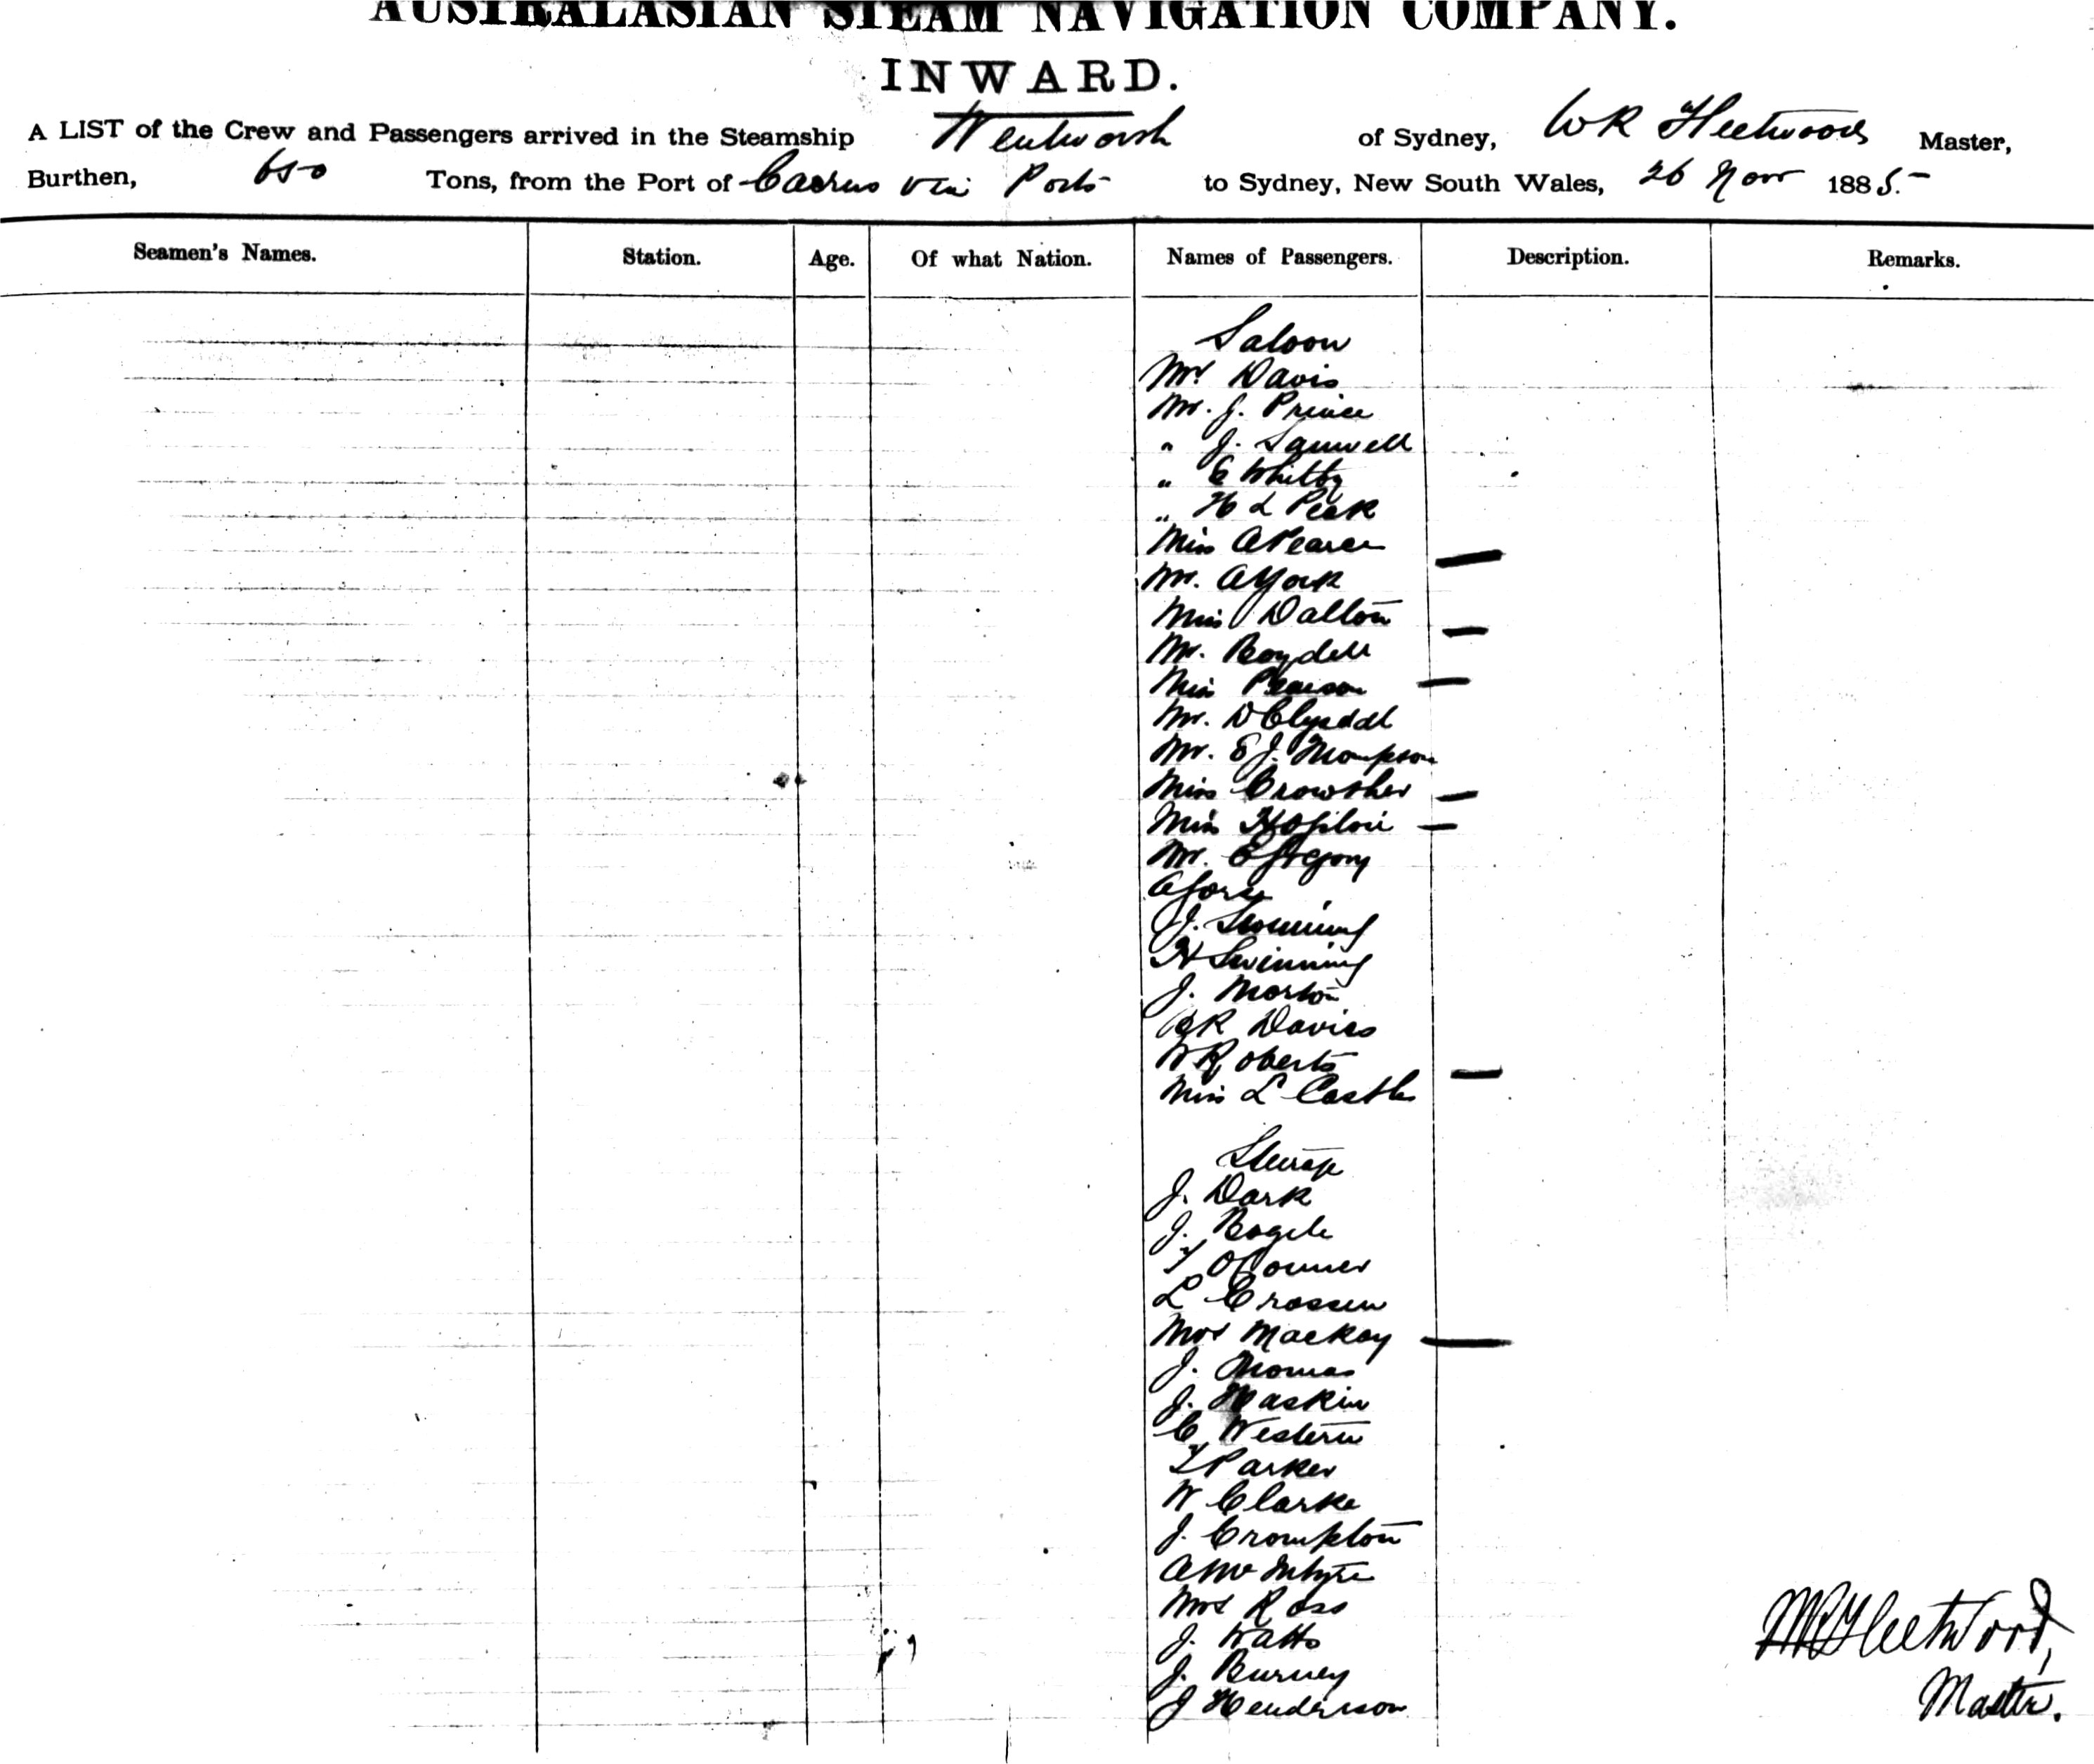 AUSTRALASIAN STEAM NAVIGATION COMPANY.
INWARD.
A LIST of the Crew and Passengers arrived in the Steamship Wentworth of Sydney, WR Fleetwood Master,
Burthen, 650 Tons, from the Port of Cairns via Ports to Sydney, New South Wales, 26 Nov 1885.
Seamen's Names. Station. Age. Of what Nation. Names of Passengers. Description. Remarks.
Saloon
Davis
Mr. J. Prince
" J. Samwell
" E Whitby
" H L Peek
Miss A Pearce
Mr. A York
Miss Dalton
Mr. Boydell
Miss Pearson
Mr. D
Mr. E J. Thompson
Miss Crowther
Miss H Ogilvie
Mr. Gregory
A
J. Swinning
H Swinning
J. Morton
R Davies
W Roberts
Miss L Castles
Steerage
J. Dark
J.
T O'Conner
L Crossen
Mrs Mackay
J. Thomas
J. Haskin
C Western
T Parker
W Clarke
J. Crompton
A McIntyre
Mrs Ross
J. Watts
J. Burney
J Henderson
WR Fleetwood,
Master.